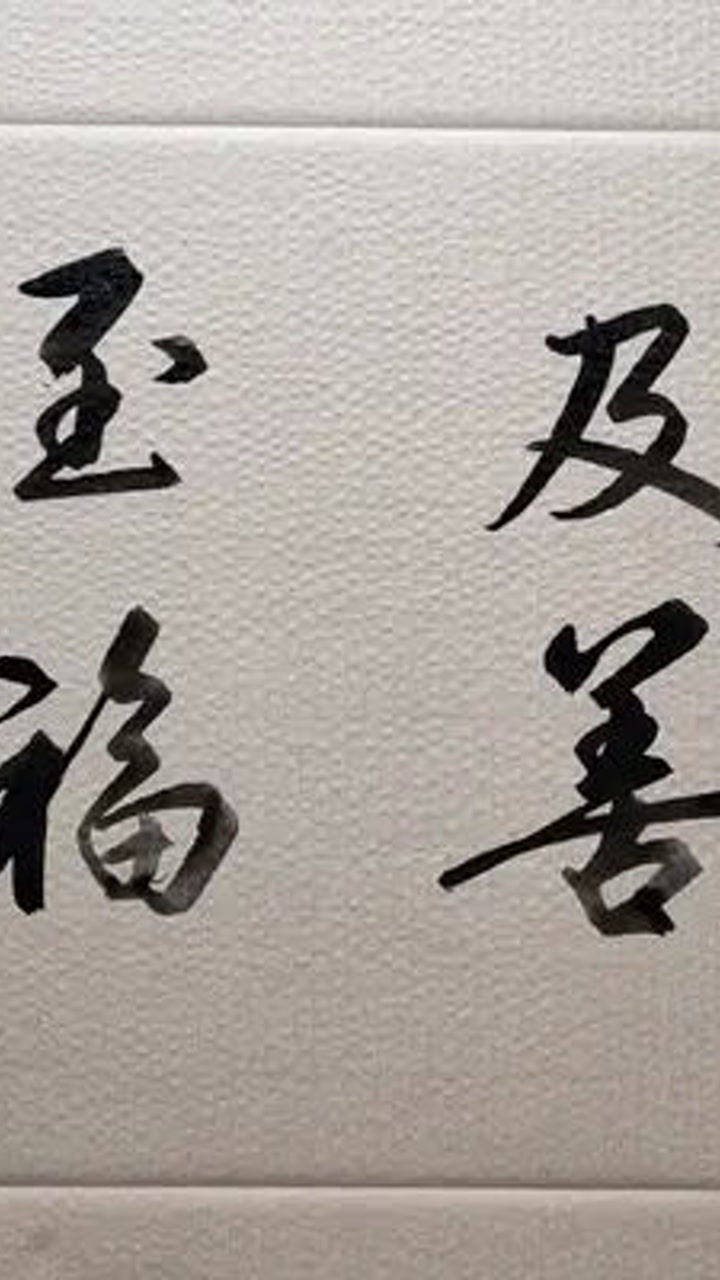 及善
至福